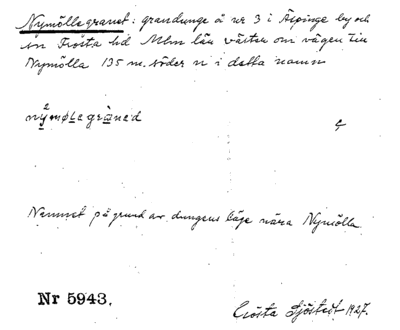 Nymöllegranet: grandunge å nr 3 i Äspinge by och
sn Frosta hd Mlm län väster om vägen till
Nymölla 135 m. söder n i detta namn
nymøllegràned
Namnet på grund av dungens läge nära Nymölla.
Nr 5943.
Gösta Sjöstedt 1927.